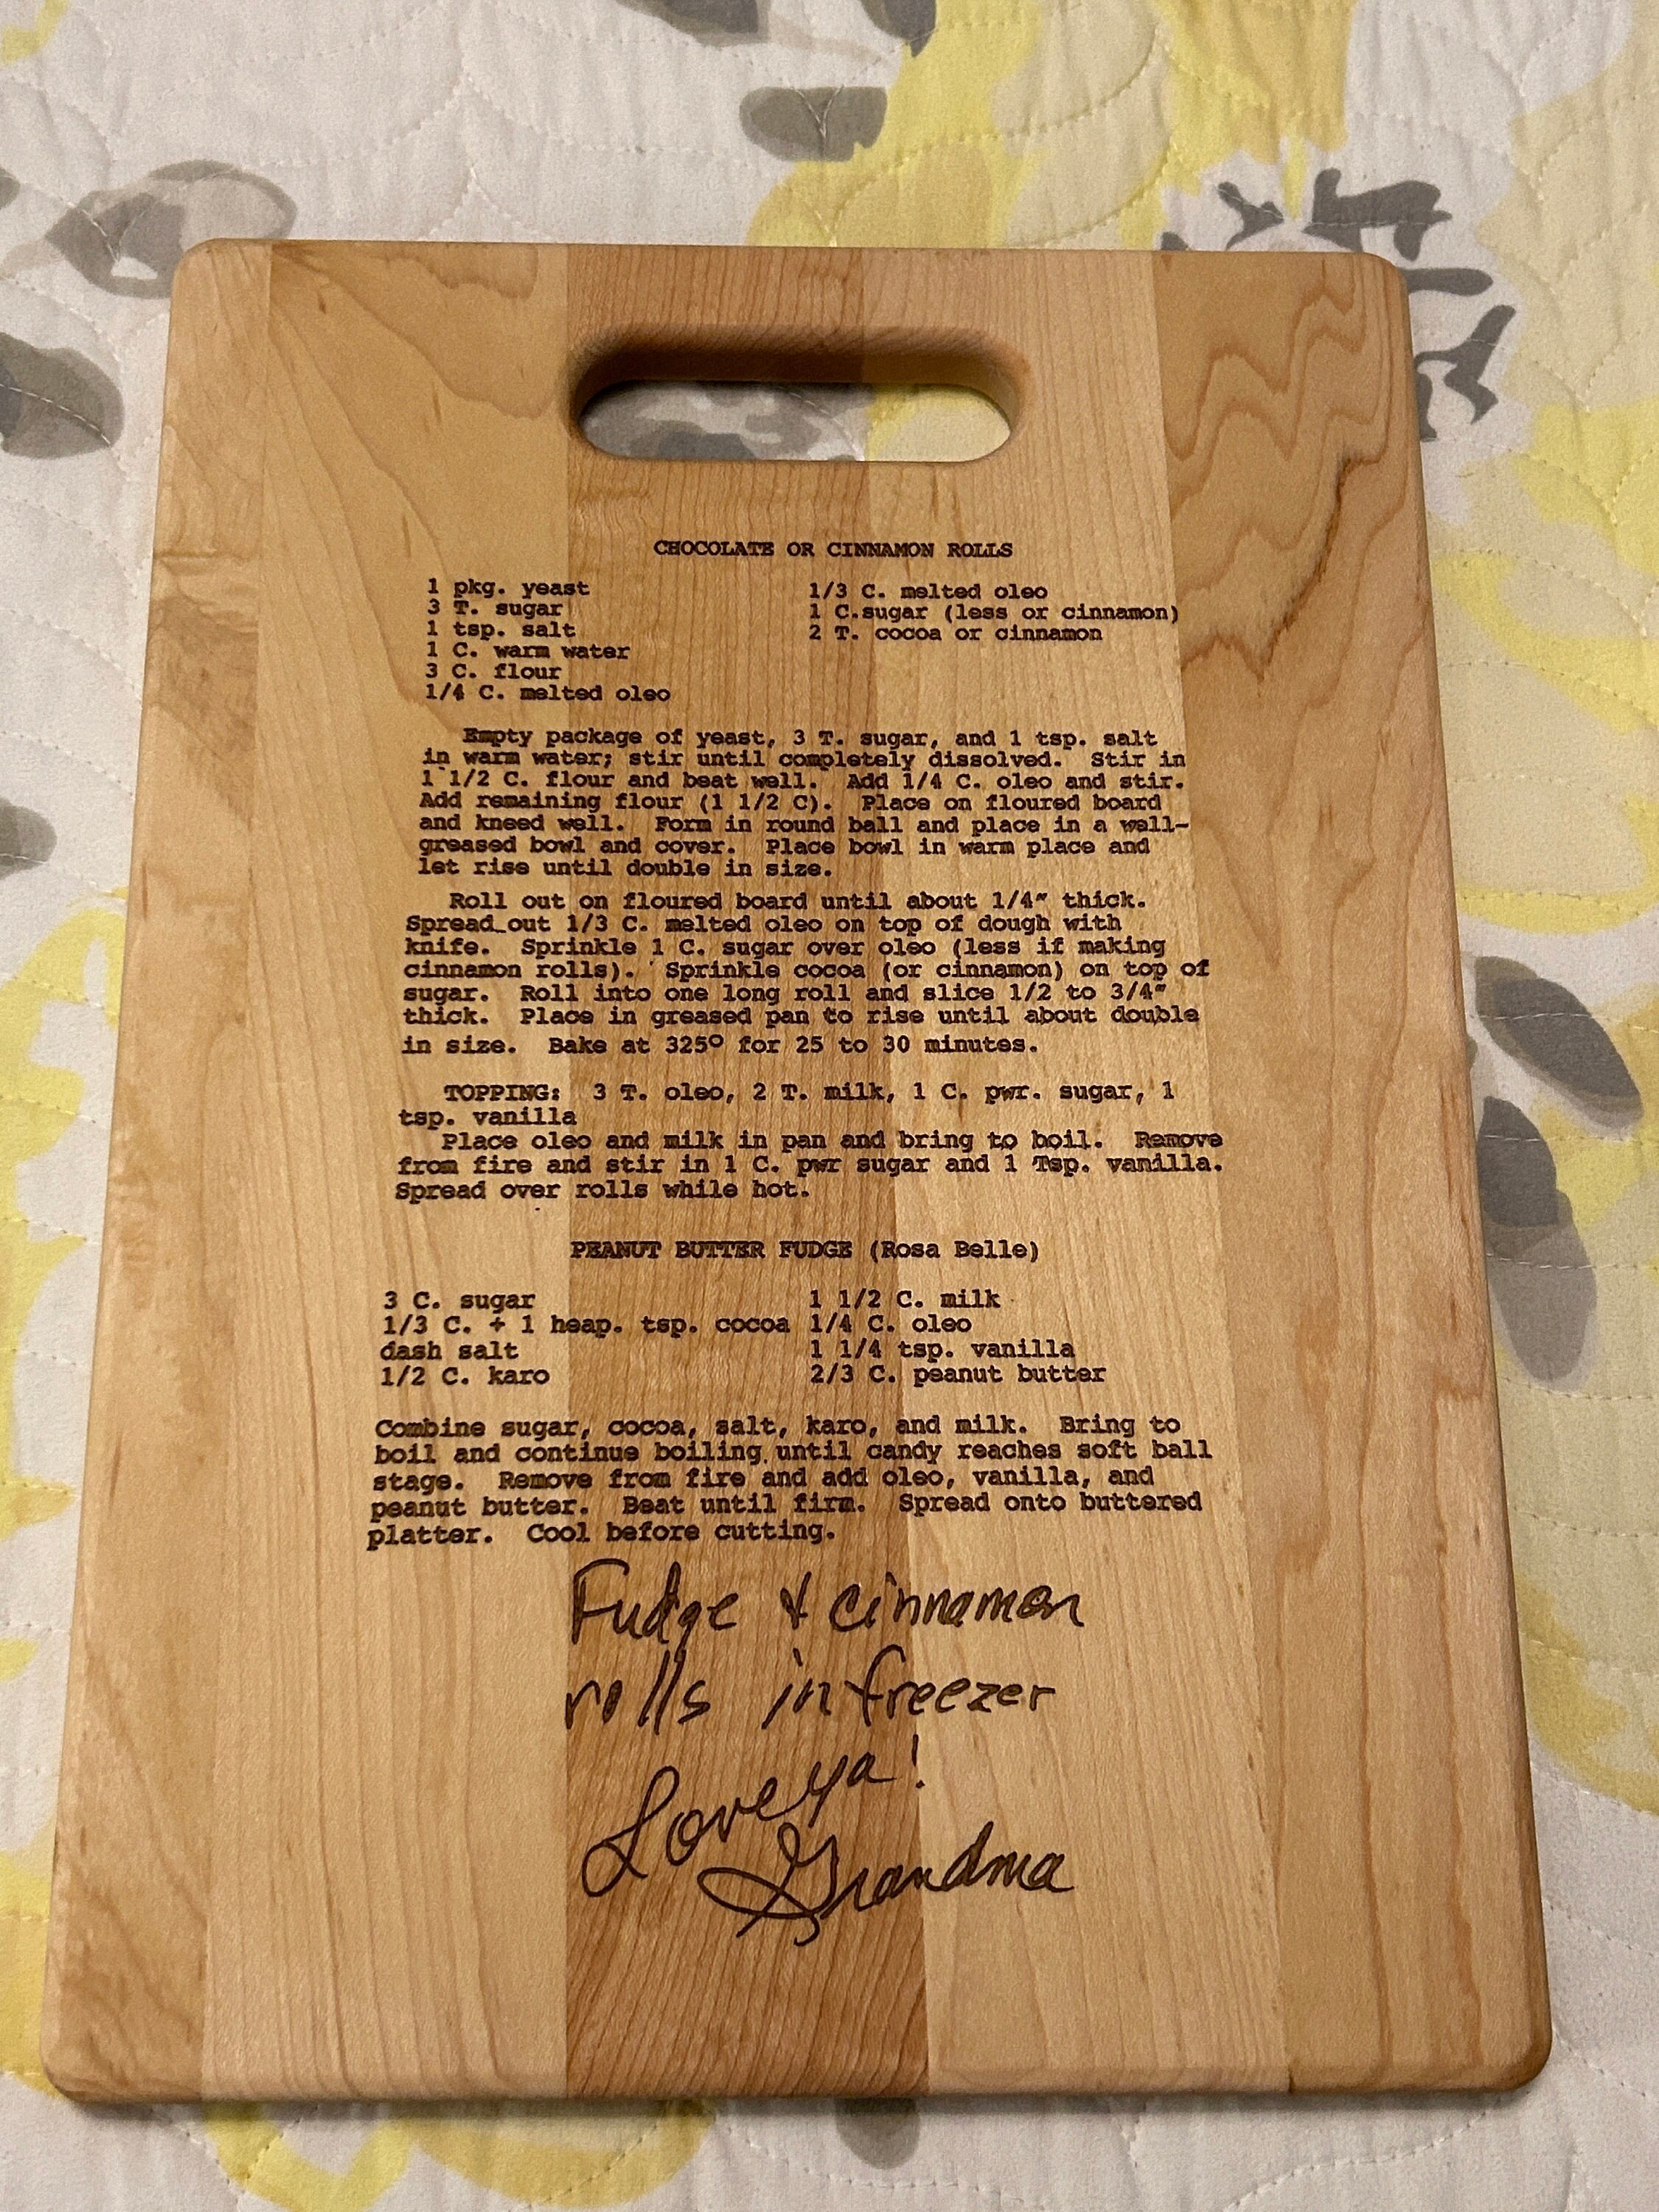 CHOCOLATE OR CINNAMON ROLLS
1 pkg. yeast
3 T. sugar
1 tsp. salt
1 C. warm water
3 C. flour
1/4 C. melted oleo
1/3 C. melted oleo
1 C.sugar (less or cinnamon)
2 T. cocoa or cinnamon
Empty package of yeast, 3 T. sugar, and 1 tsp. salt
in warm water; stir until completely dissolved. Stir in
1 1/2 C. flour and beat well. Add 1/4 C. oleo and stir.
Add remaining flour (1 1/2 C). Place on floured board
and kneed well. Form in round ball and place in a well-
greased bowl and cover. Place bowl in warm place and
let rise until double in size.
Roll out on floured board until about 1/4" thick.
Spread out 1/3 C. melted oleo on top of dough with
knife. Sprinkle 1 C. sugar over oleo (less if making
cinnamon rolls). Sprinkle cocoa (or cinnamon) on top of
sugar. Roll into one long roll and slice 1/2 to 3/4"
thick. Place in greased pan to rise until about double
in size. Bake at 325° for 25 to 30 minutes.
TOPPING: 3 T. oleo, 2 T. milk, 1 C. pwr. sugar, 1
tsp. vanilla
Place oleo and milk in pan and bring to boil. Remove
from fire and stir in 1 C. pwr sugar and 1 Tsp. vanilla.
Spread over rolls while hot.
PEANUT BUTTER FUDGE (Rosa Belle)
3 C. sugar
1/3 C. + 1 heap. tsp. cocoa
dash salt
1/2 C. karo
1 1/2 C. milk
1/4 C. oleo
1 1/4 tsp. vanilla
2/3 C. peanut butter
Combine sugar, cocoa, salt, karo, and milk. Bring to
boil and continue boiling until candy reaches soft ball
stage. Remove from fire and add oleo, vanilla, and
peanut butter. Beat until firm. Spread onto buttered
platter. Cool before cutting.
Fudge & cinnamon
rolls in freezer
Love ya!
Grandma